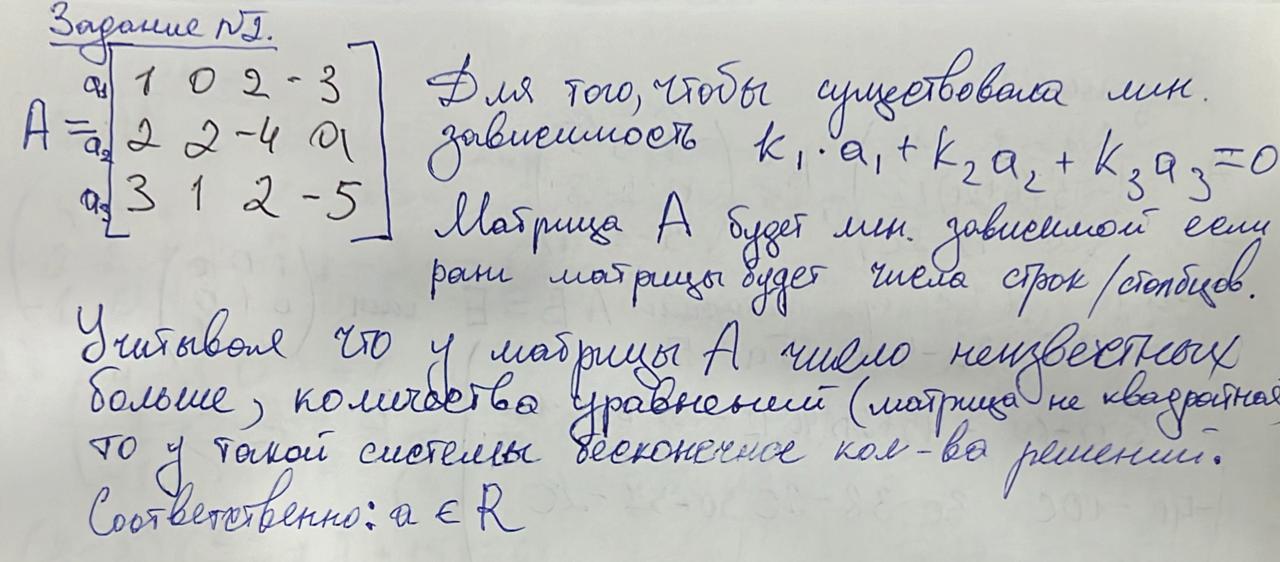 Задание №2.
A = a₁ a₂ a₃ [ 1 0 2 -3
2 2 -4 a
3 1 2 -5 ]
Для того, чтобы существовала лин.
зависимость k₁·a₁ + k₂a₂ + k₃a₃ = 0
Матрица A будет лин. зависимой если
ранг матрицы будет числа строк/столбцов.
Учитывая что у матрицы A число неизвестных
больше, количества уравнений (матрица не квадратная
то у такой системы бесконечное кол-во решений.
Соответственно: a ∈ R